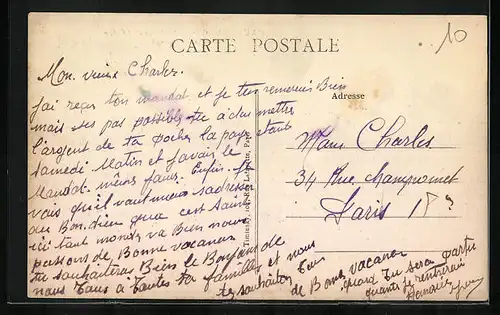 CARTE POSTALE
10
Mon vieux Charles.
j'ai reçu ton mandat et je te remerci Bien
Adresse
mais ses pas possible tu a du mettre
l'argent de ta poche la paye etant
samedi Matin et j'avais le
Mandat même jour. Enfin je
vois qu'il vaut mieux s'adresser
au Bon dieu que c'est Saint
ici tout monde va Bien nous
passons de Bonne vacances
tu souhaiteras Bien le Bonjour de
nous tous a toutes ta famille et nous
te souhaiton tous
de Bonne vacance
quand tu sera partu
quants je rentrerai
Mons Charles
34 Rue Championnet
Paris 18